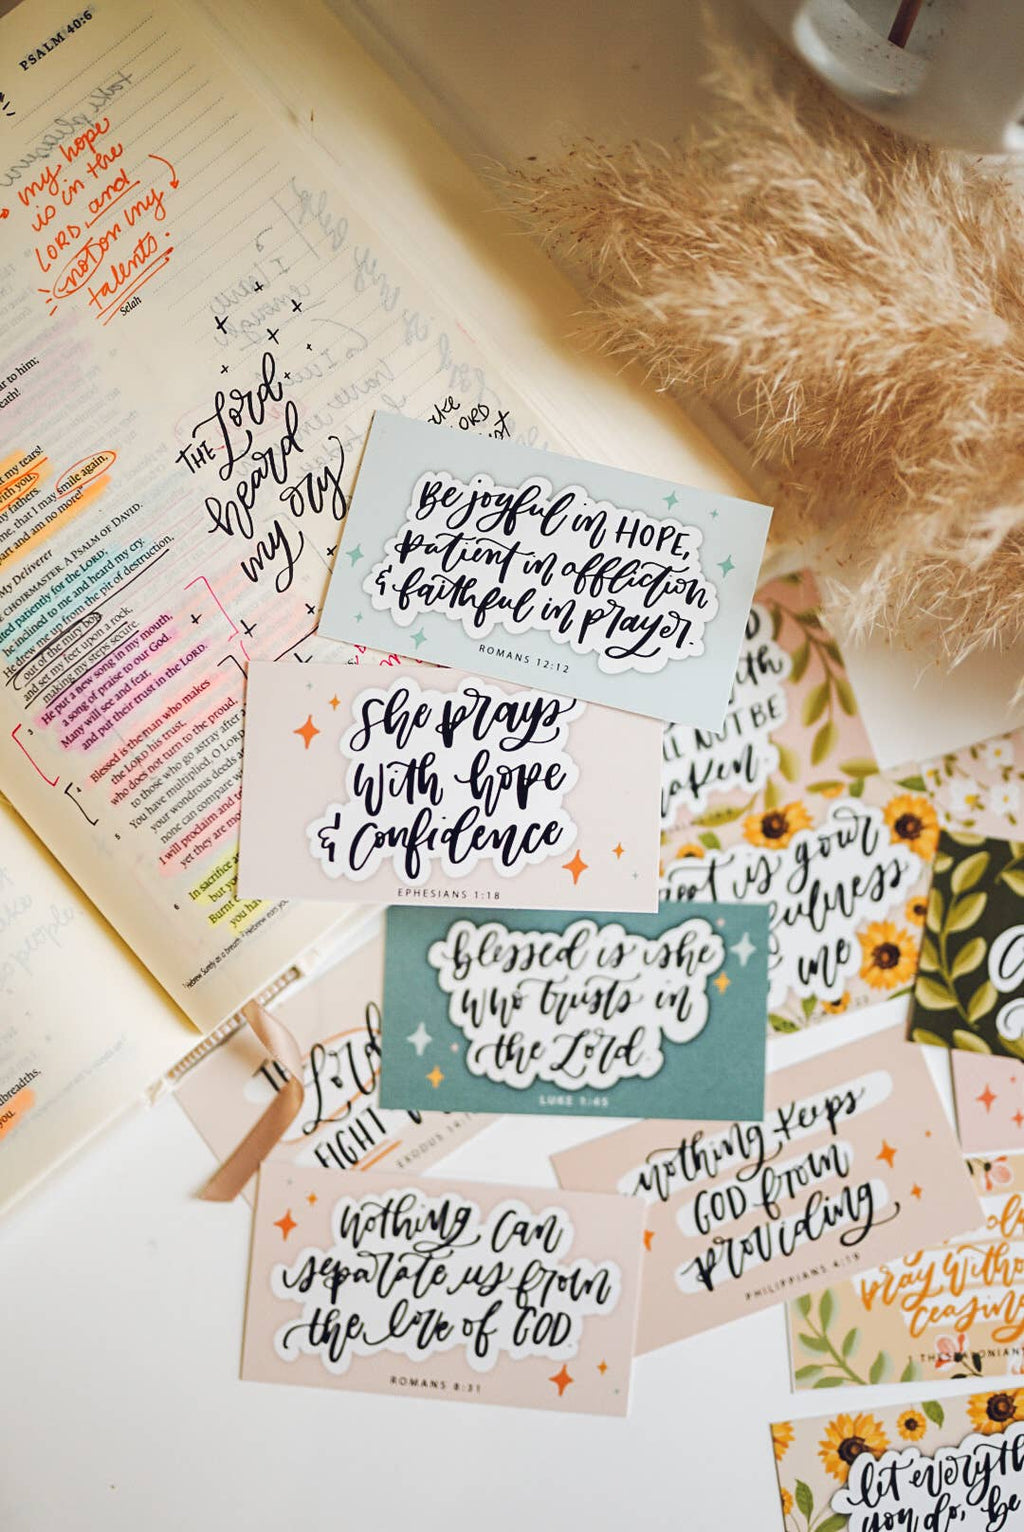 PSALM 40:6
my hope
is in the
LORD, and
not on my
talents.
Selah
THE Lord
heard
my cry
ar to him;
eath!
t my tears!
with you,
my fathers.
me, that I may smile again,
part and am no more!"
My Deliverer
CHOIRMASTER. A PSALM OF DAVID.
ited patiently for the LORD;
he inclined to me and heard my cry.
He drew me up from the pit of destruction,
out of the miry bog,
and set my feet upon a rock,
making my steps secure.
3 He put a new song in my mouth,
a song of praise to our God.
Many will see and fear,
and put their trust in the LORD.
4 Blessed is the man who makes
the LORD his trust,
who does not turn to the proud,
to those who go astray after
5 You have multiplied, O LORD
your wondrous deeds
none can compare w
I will proclaim and
yet they are mo
6 In sacrifice
but yo
Burnt
you ha
Be joyful in HOPE,
patient in affliction
& faithful in prayer.
ROMANS 12:12
She prays
with hope
& confidence
EPHESIANS 1:18
blessed is she
who trusts in
the Lord.
LUKE 1:45
Lord
FIGHT
EXODUS 14:1
nothing can
separate us from
the love of GOD.
ROMANS 8:31
nothing keeps
GOD from
providing
PHILIPPIANS 4:19
NOT BE
aken.
is your
fulness
me
pray witho
ceasing
1 THESSALONIAN
let everyth
you do, be
dbreadths,
you.